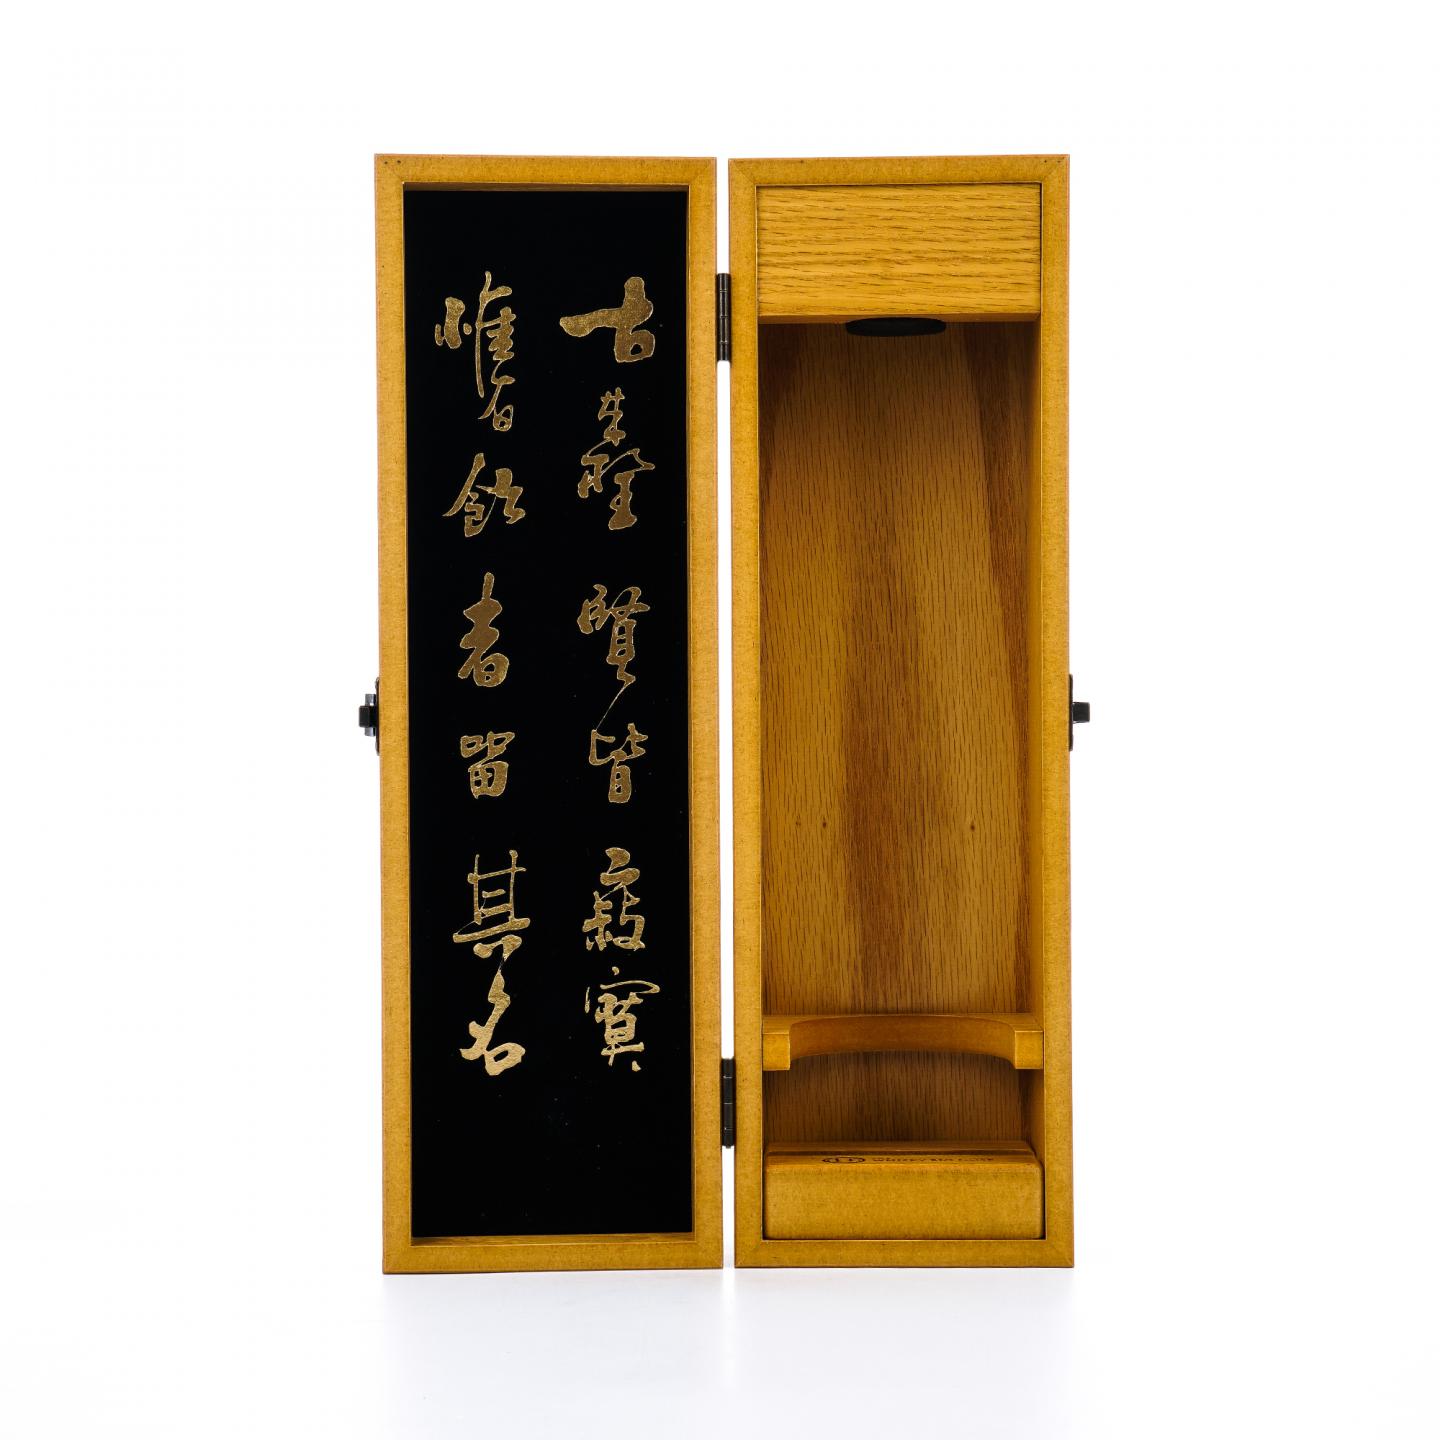 古來聖賢皆寂寞
惟有飲者留其名